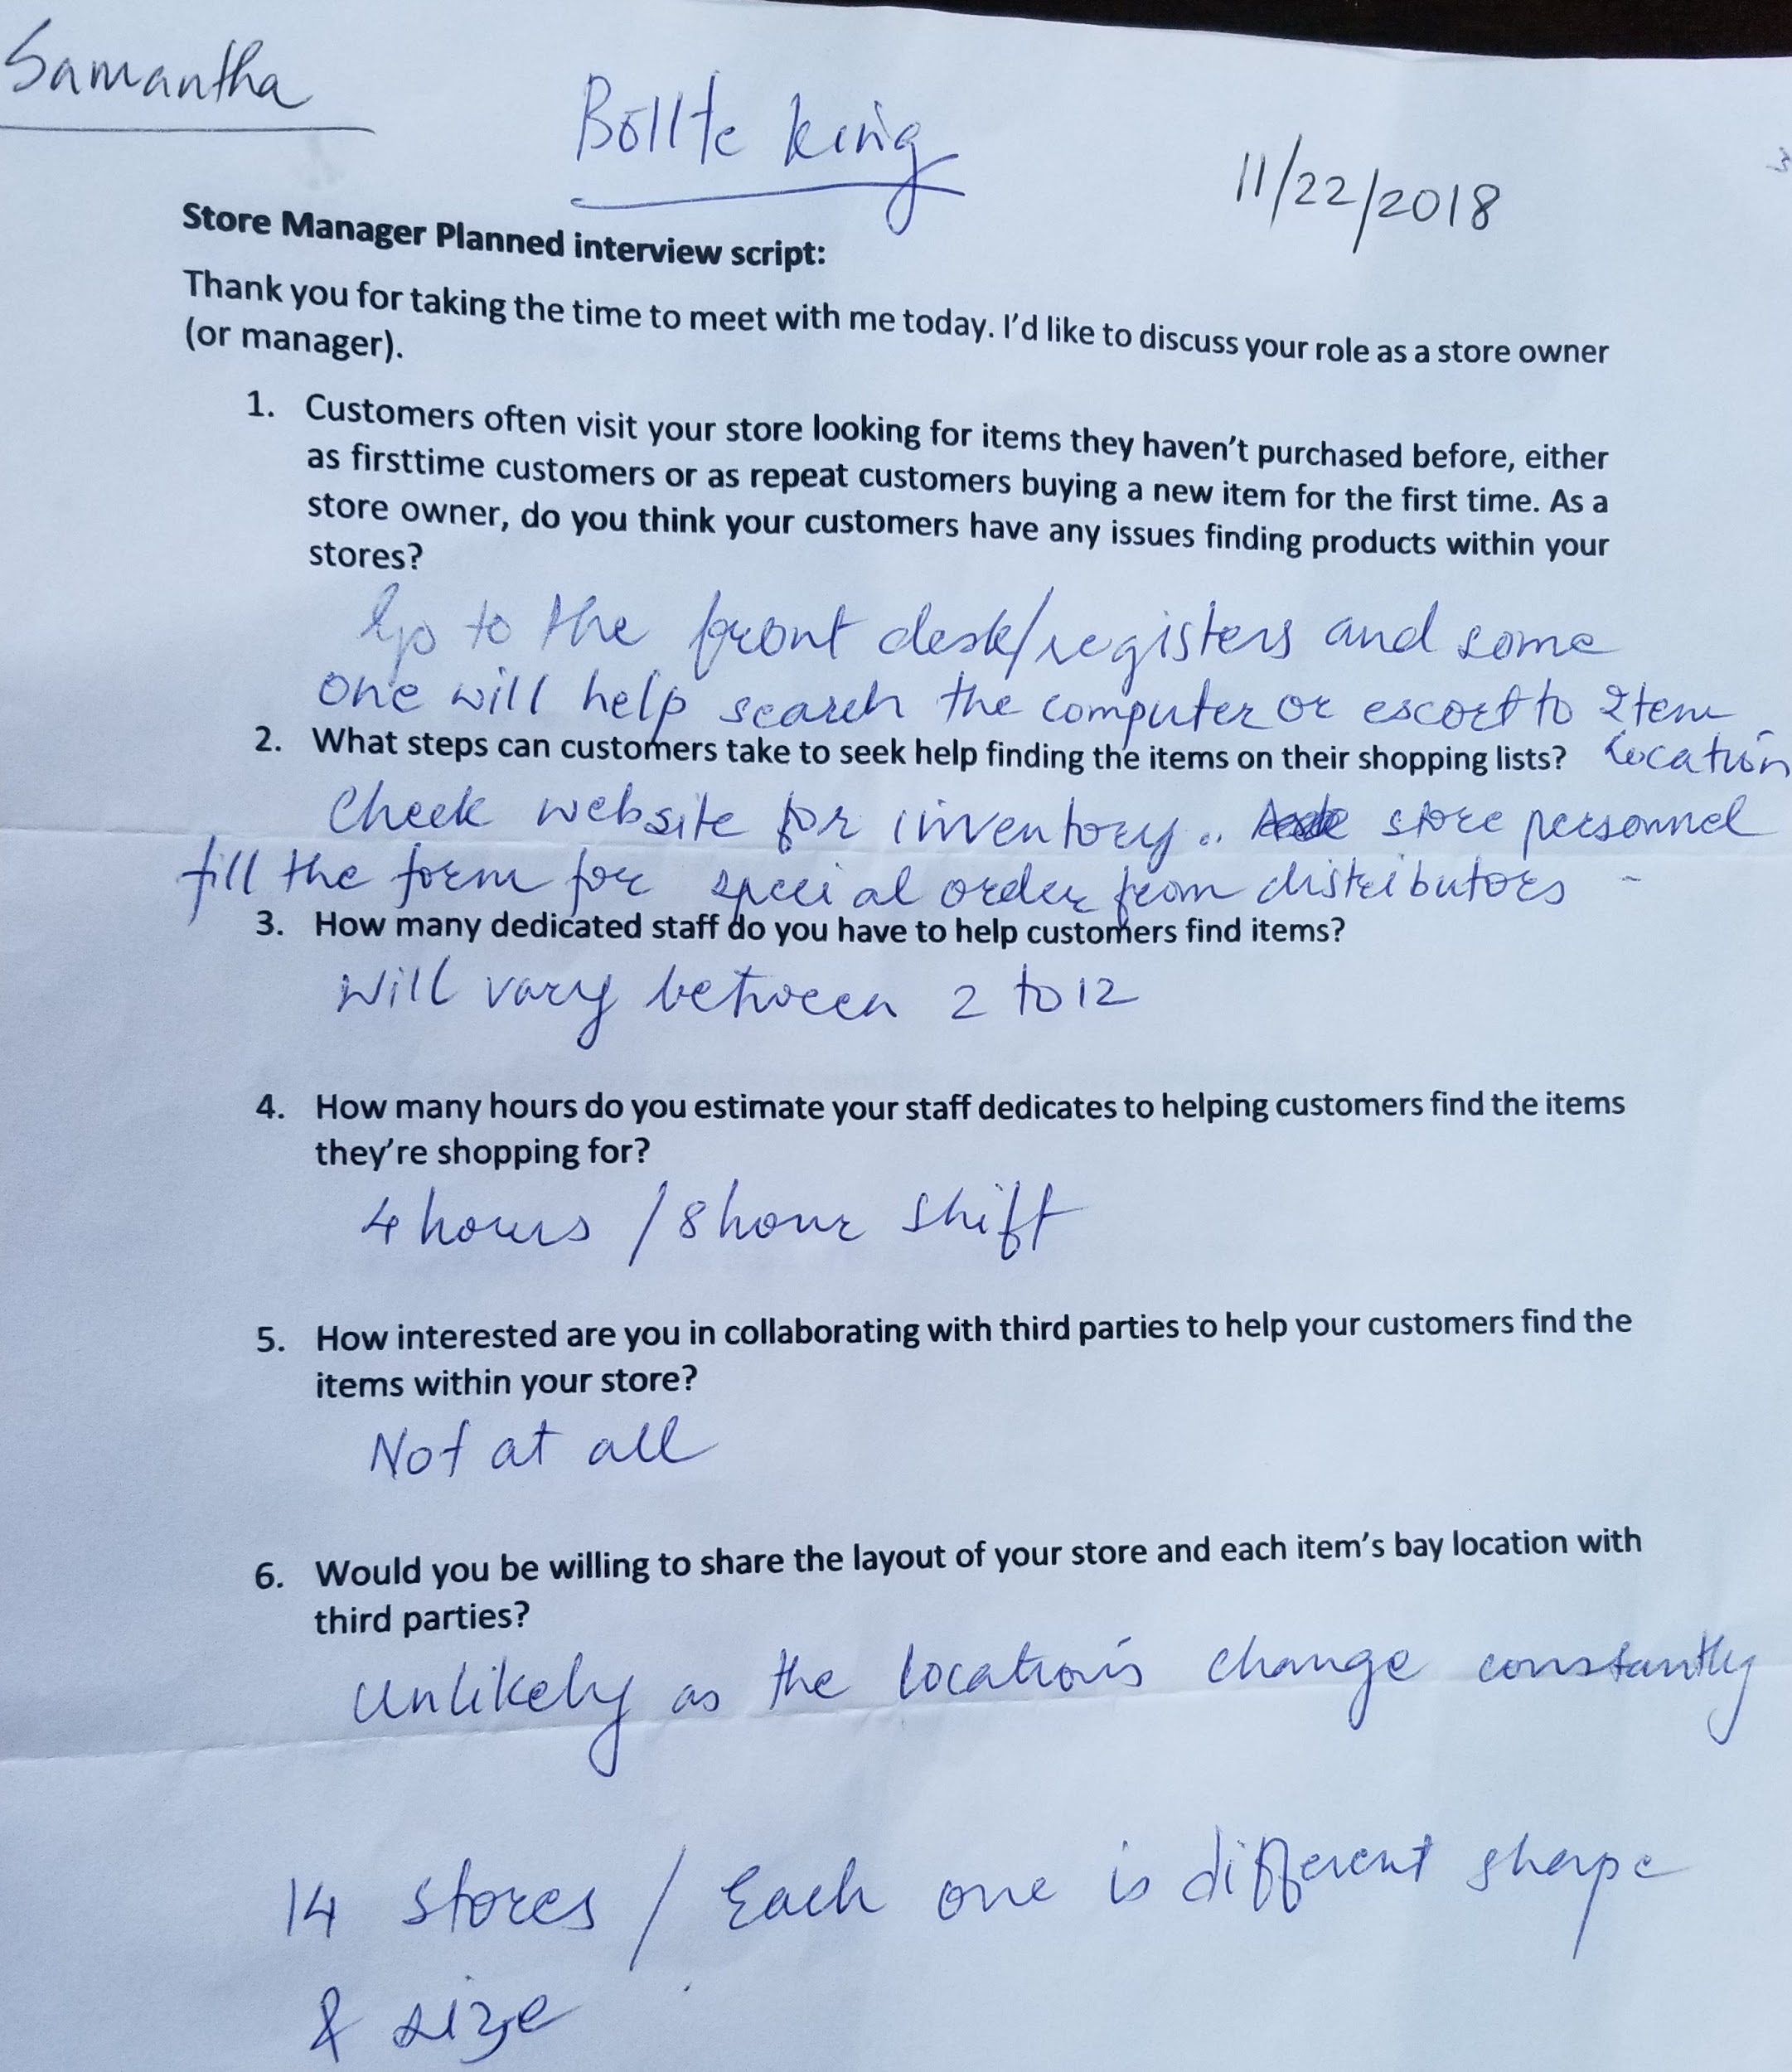 Samantha
Bollte King
11/22/2018
Store Manager Planned interview script:
Thank you for taking the time to meet with me today. I'd like to discuss your role as a store owner
(or manager).
1. Customers often visit your store looking for items they haven't purchased before, either
as firsttime customers or as repeat customers buying a new item for the first time. As a
store owner, do you think your customers have any issues finding products within your
stores?
Go to the front desk/registers and some
one will help search the computer or escort to Item
location
2. What steps can customers take to seek help finding the items on their shopping lists?
Check website for inventory.. store personnel
fill the form for special order from distributors -
3. How many dedicated staff do you have to help customers find items?
Will vary between 2 to 12
4. How many hours do you estimate your staff dedicates to helping customers find the items
they're shopping for?
4 hours / 8 hour shift
5. How interested are you in collaborating with third parties to help your customers find the
items within your store?
Not at all
6. Would you be willing to share the layout of your store and each item's bay location with
third parties?
Unlikely as the locations change constantly
14 stores / Each one is different shape
& size